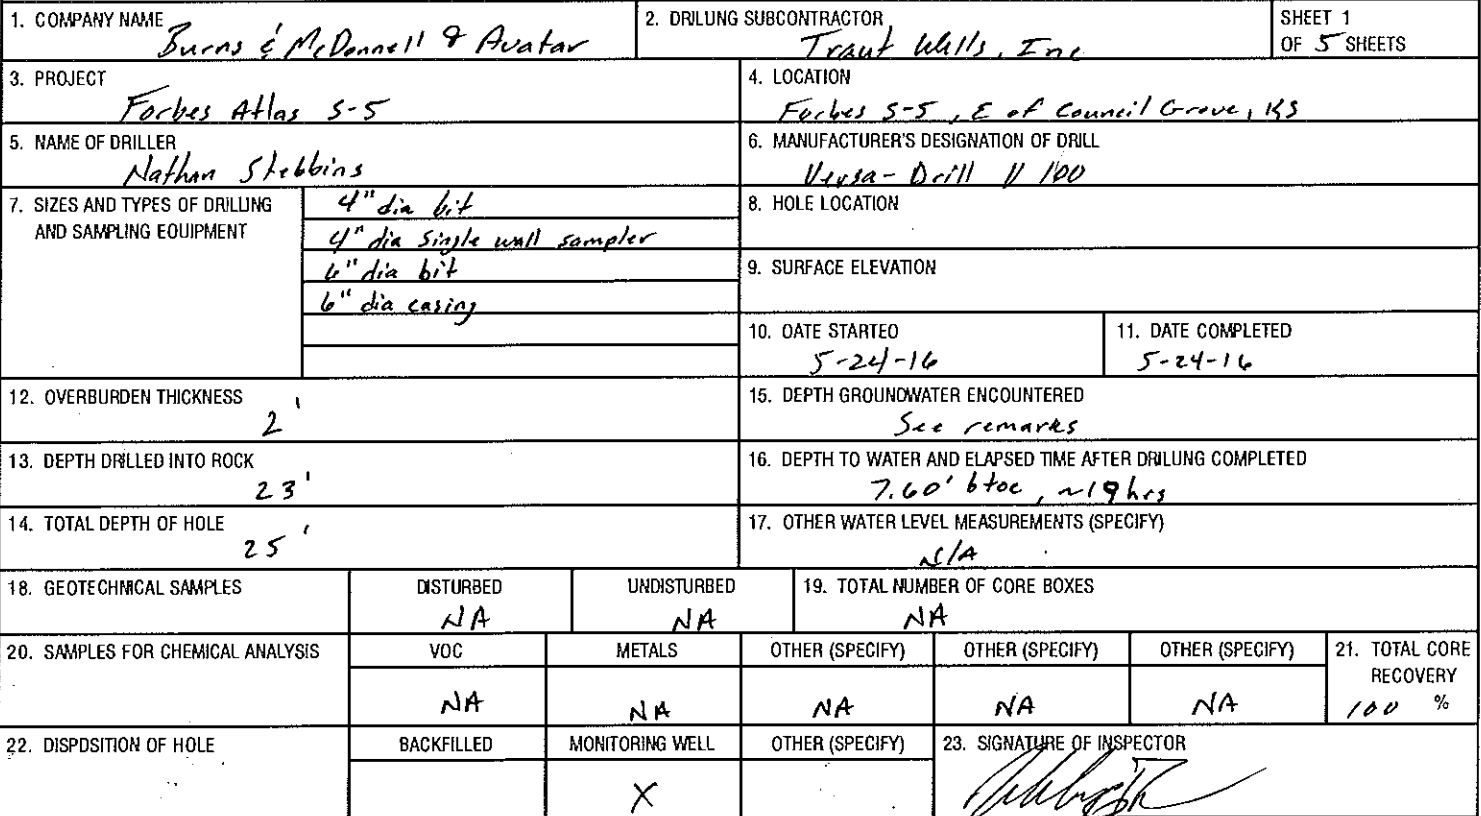 1. COMPANY NAME
Burns & McDonnell & Avatar
2. DRILLING SUBCONTRACTOR
Traut Wells, Inc
SHEET 1
OF 5 SHEETS
3. PROJECT
Forbes Atlas S-5
4. LOCATION
Forbes S-5, E of Council Grove, KS
5. NAME OF DRILLER
Nathan Stebbins
6. MANUFACTURER'S DESIGNATION OF DRILL
Versa-Drill V 100
7. SIZES AND TYPES OF DRILLING
AND SAMPLING EQUIPMENT
4" dia bit
4" dia single wall sampler
6" dia bit
6" dia casing
8. HOLE LOCATION
9. SURFACE ELEVATION
10. DATE STARTED
5-24-16
11. DATE COMPLETED
5-24-16
12. OVERBURDEN THICKNESS
2'
15. DEPTH GROUNDWATER ENCOUNTERED
See remarks
13. DEPTH DRILLED INTO ROCK
23'
16. DEPTH TO WATER AND ELAPSED TIME AFTER DRILLING COMPLETED
7.60' btoc, ~19 hrs
14. TOTAL DEPTH OF HOLE
25'
17. OTHER WATER LEVEL MEASUREMENTS (SPECIFY)
N/A
18. GEOTECHNICAL SAMPLES
DISTURBED
NA
UNDISTURBED
NA
19. TOTAL NUMBER OF CORE BOXES
NA
20. SAMPLES FOR CHEMICAL ANALYSIS
VOC
METALS
OTHER (SPECIFY)
OTHER (SPECIFY)
OTHER (SPECIFY)
21. TOTAL CORE
RECOVERY
NA
NA
NA
NA
NA
100 %
22. DISPOSITION OF HOLE
BACKFILLED
MONITORING WELL
OTHER (SPECIFY)
23. SIGNATURE OF INSPECTOR
X